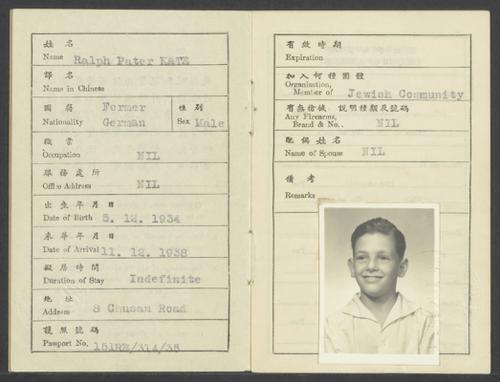 姓名
Name Ralph Pater KATZ
譯名
Name in Chinese
國籍 Former 性別
Nationality German Sex Male
職業
Occupation NIL
服務處所
Office Address NIL
出生年月日
Date of Birth 5. 12. 1934
來華年月日
Date of Arrival 11. 12. 1938
擬居時間
Duration of Stay Indefinite
地址
Address 8 Chusan Road
護照號碼
Passport No. 151RZ/314/38
有效時期
Expiration
加入何種團體
Organization, Member of Jewish Community
有無槍械 說明種類及號碼
Any Firearms, Brand & No. NIL
配偶姓名
Name of Spouse NIL
備考
Remarks